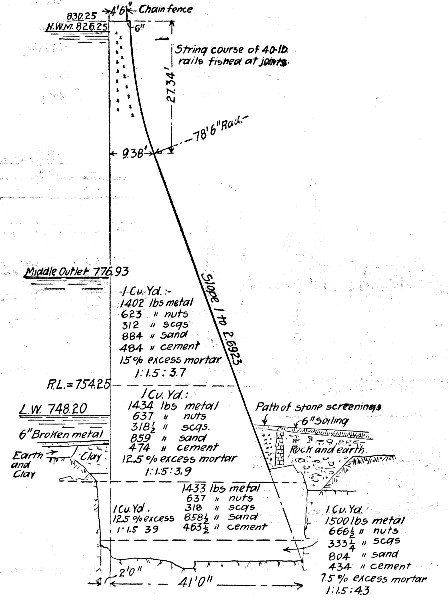 830.25
4'6"
Chain fence
H.W.M. 826.25
6"
String course of 40-lb.
rails fished at joints.
27.34'
78'6" Rad.
9.38'
Middle Outlet 776.93
Slope 1 to 2.6923
1 Cu. Yd.:-
1402 lbs metal
623 " nuts
312 " scgs
884 " sand
484 " cement
15% excess mortar
1:1.5:3.7
R.L.=754.25
1 Cu. Yd.:
1434 lbs metal
637 " nuts
318½ " scgs.
859 " sand
474 " cement
12.5% excess mortar
1:1.5:3.9
L.W. 748.20
6" Broken metal
Earth
and
Clay
Clay
Path of stone screenings
6" Soiling
Rock and earth
1 Cu. Yd.
12.5% excess
1:1.5 39
1433 lbs metal
637 " nuts
318 " scgs
858½ " sand
463½ " cement
1 Cu. Yd:
1500 lbs metal
666½ " nuts
333¼ " scgs
804 " sand
434 " cement
7.5% excess mortar
1:1.5:4.3
2'0"
41'0"